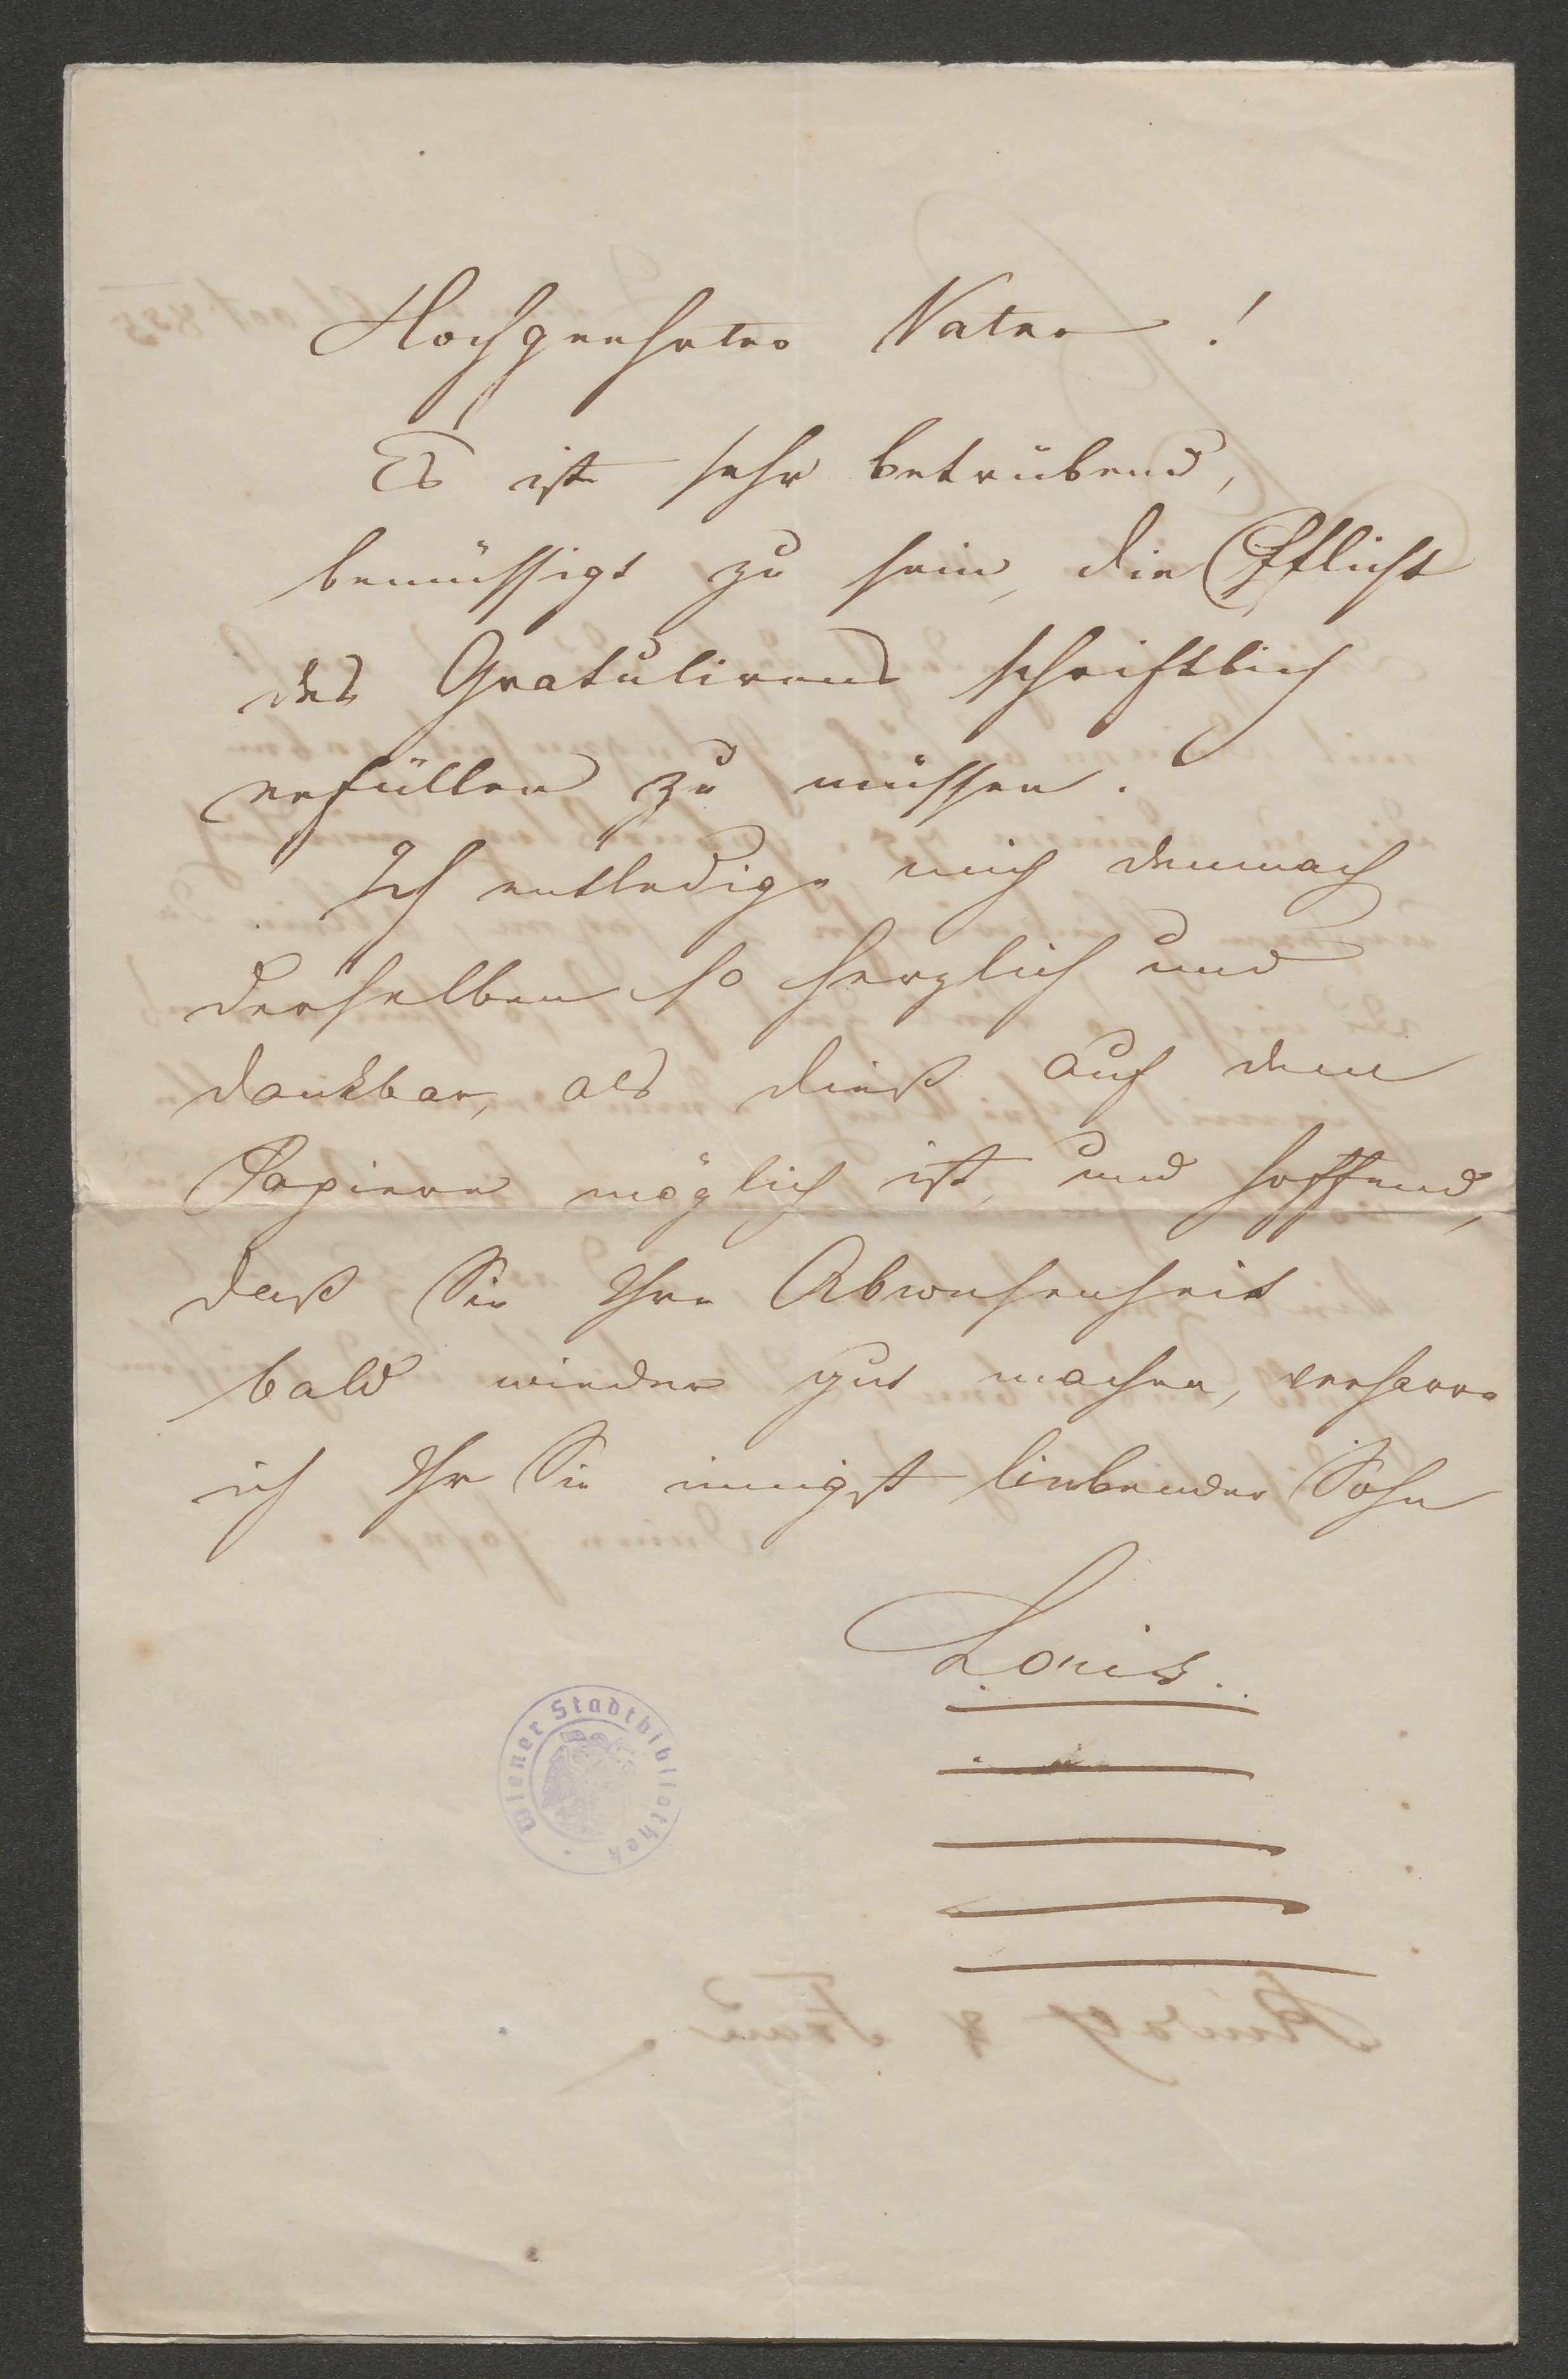 Hochgeehrter Vater!
Es ist sehr betrübend,
bemüssigt zu sein, die Pflicht
des Gratulirens schriftlich
erfüllen zu müssen.
Ich entledige mich demnach
derselben so herzlich und
dankbar, als dieß auf dem
Papiere möglich ist, und hoffend,
daß Sie Ihre Abwesenheit
bald wieder gut machen, verharre
ich Ihr Sie innigst liebender Sohn
Louis.
Wiener Stadtbibliothek